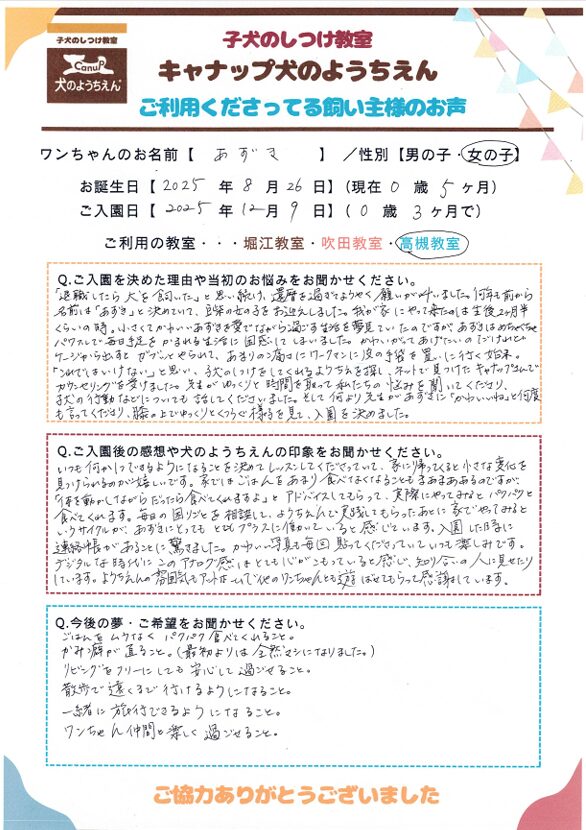 子犬のしつけ教室
CanuP
犬のようちえん
子犬のしつけ教室
キャナップ犬のようちえん
ご利用くださってる飼い主様のお声
ワンちゃんのお名前【 あずき 】 /性別【男の子・女の子】
お誕生日【 2025 年 8 月 26 日】(現在 0 歳 5 ヶ月)
ご入園日【 2025 年 12 月 9 日】( 0 歳 3 ヶ月で)
ご利用の教室・・・堀江教室・吹田教室・高槻教室
Q.ご入園を決めた理由や当初のお悩みをお聞かせください。
「退職したら犬を飼いたい」と思い続け、還暦を過ぎてようやく願いが叶いました。何年も前から
名前は「あずき」と決めていて、豆柴の女の子をお迎えしました。我が家にやって来たのは生後2ヶ月半
くらいの時。小さくてかわいいあずきを愛でながら過ごす生活を夢見ていたのですが、あずきはめちゃめちゃ
パワフルで毎日手足をかまれる生活に困惑してしまいました。かわいがってあげたいのにけれど
ケージから出すとガブッとやられて、あまりの痛さにワークマンに皮の手袋を買いに行く始末。
「これではいけない。」と思い、子犬のしつけをしてくれるようちえんを探し、ネットで見つけたキャナップさんで
カウンセリングを受けました。先生がゆっくりと時間を取って私たちの悩みを聞いてくださり、
子犬の行動などについても話してくださいました。そして何より先生があずきに「かわいいね」と何度
も言ってくださり、膝の上でゆっくりとくつろぐ様子を見て、入園を決めました。
Q.ご入園後の感想や犬のようちえんの印象をお聞かせください。
いつも何か1つできるようになることを決めてレッスンしてくださっていて、家に帰ってくると小さな変化を
見つけられるのが嬉しいです。家ではごはんをあまり食べなくなることもまあまああるのですが、
「体を動かしながらだったら食べてくれますよ」とアドバイスしてもらって、実際にやってみるとパクパクと
食べてくれます。毎日の困りごとを相談して、ようちえんで実践してもらったあとに家でやってみると
いうサイクルが、あずきにとってもとてもプラスに働いていると感じています。入園した時に
連絡帳があることに驚きました。かわいい写真も毎回貼ってくださっていていつも楽しみです。
デジタルな時代にこのアナログ感はとても心がこもっていると感じ、知り合いの人に見せたり
しています。ようちえんの雰囲気もアットホームで他のワンちゃんとも遊ばせてもらって感謝しています。
Q.今後の夢・ご希望をお聞かせください。
ごはんをムラなくパクパク食べてくれること。
かみ癖が直ること。(最初よりは全然マシになりました。)
リビングをフリーにしても安心して過ごせること。
散歩で遠くまで行けるようになること。
一緒に旅行できるようになること。
ワンちゃん仲間と楽しく過ごせること。
ご協力ありがとうございました